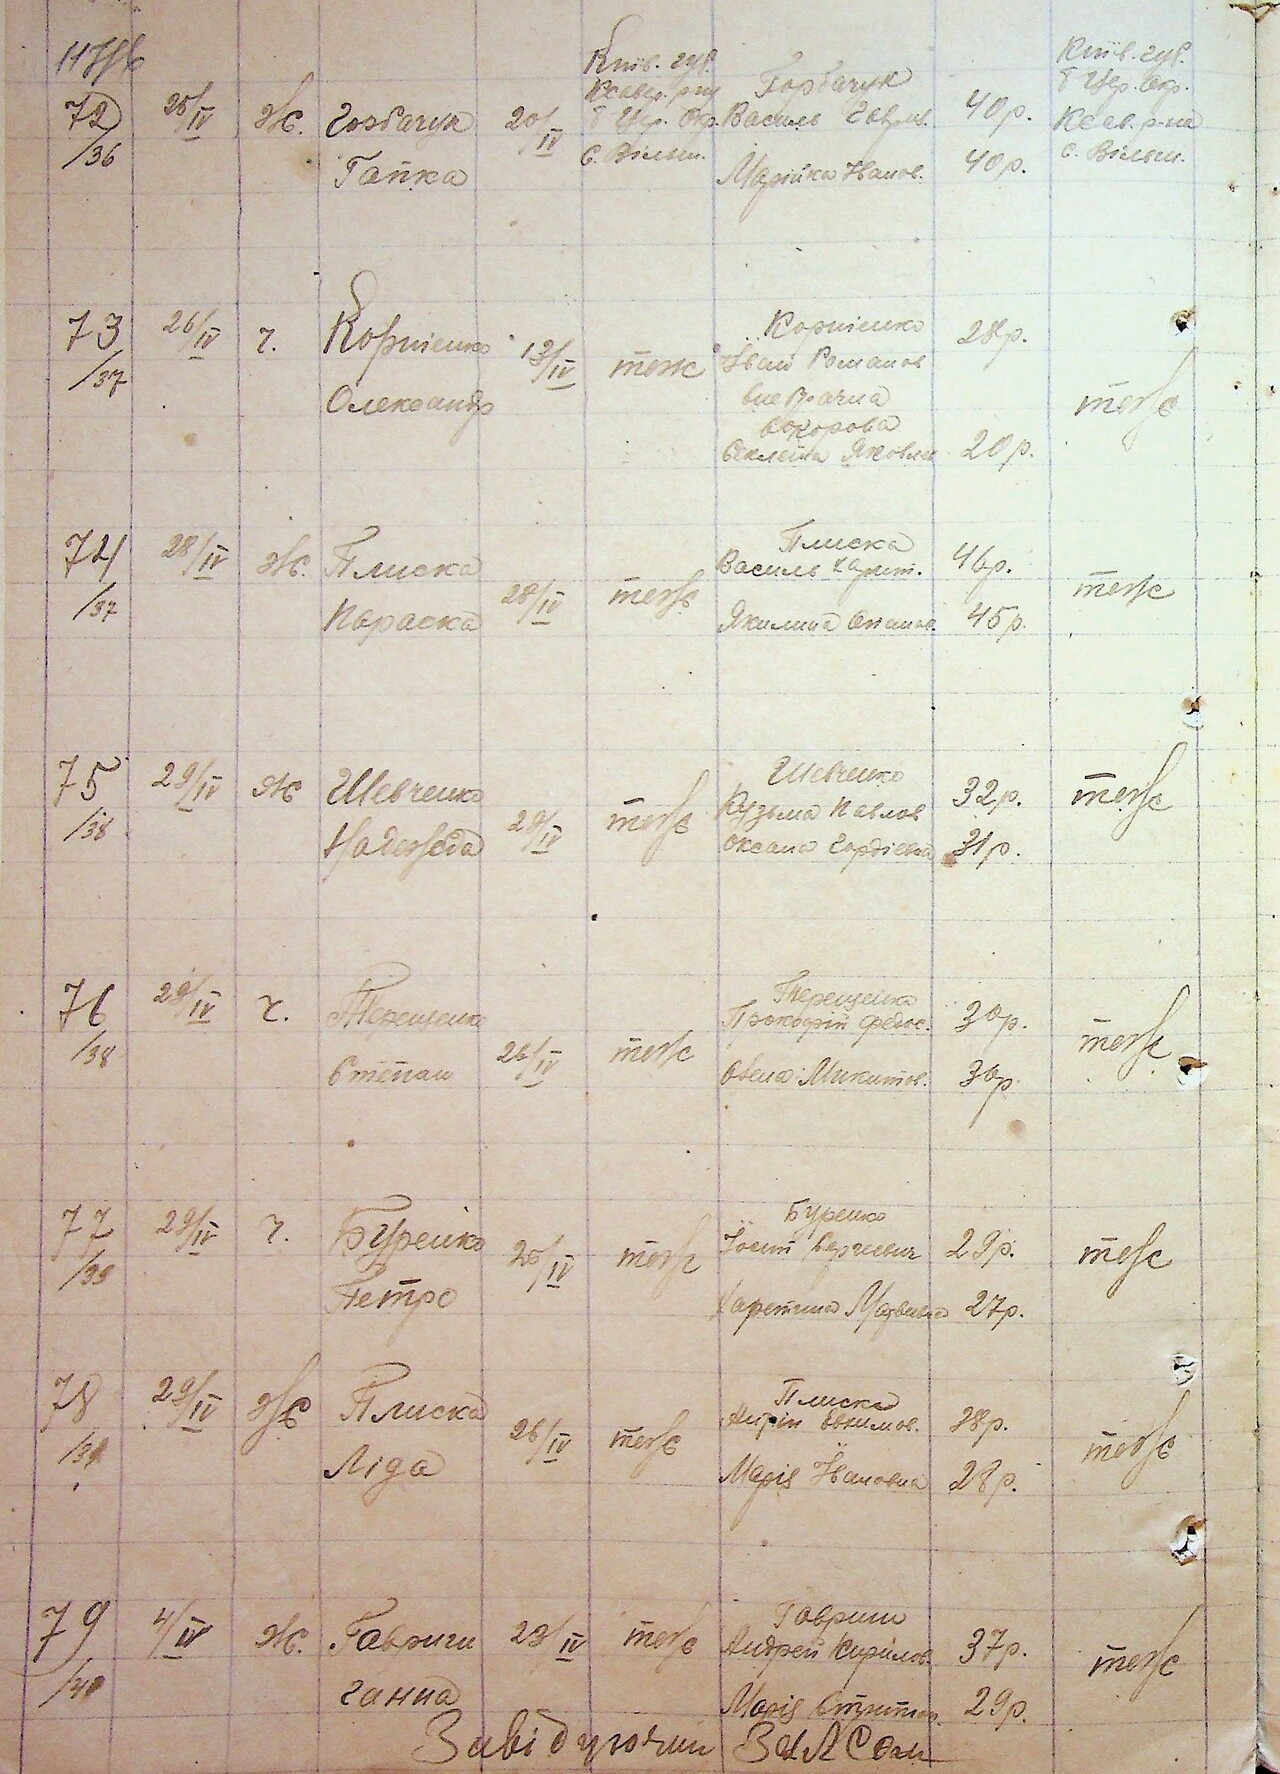 72
/36
25/IV
Ж.
Горбачук
Гапка
20/IV
Київ. губ.
б Чер. Окр.
с. Вільш.
Горбачук
Василь Гаврил.
Марійка Іванов.
40р.
40р.
Київ. губ.
б Чер. Окр.
с. Вільш.
73
/37
26/IV
ч.
Корнієнко
Олександр
13/IV
теж
Корнієнко
Іван Романов
внебрачна
Яковл
28р.
20р.
теж
74
/37
28/IV
Ж.
Плиска
Параска
28/IV
теж
Плиска
Василь Харит.
Якилина Степанов.
46р.
45р.
теж
75
/38
29/IV
Ж
Шевченко
Надежда
29/IV
теж
Шевченко
Кузьма Павлов
Оксана Гордіевна
32р.
31р.
теж
76
/38
29/IV
ч.
Терещенко
Степан
26/IV
теж
Терещенко
Прокофій Федос.
Микитов.
30р.
30р.
теж
77
/39
29/IV
ч.
Буренко
Петро
25/IV
теж
Буренко
Йосип Сергиевич
Харитина Матвиевна
29р.
27р.
теж
78
/39
29/IV
Ж
Плиска
Ліда
26/IV
теж
Плиска
Андрій Евхимов.
Марія Івановна
28р.
28р.
теж
79
/40
4/IV
Ж.
Гавриш
Ганна
23/IV
теж
Гавриш
Андрей Кирилов.
Марія
37р.
29р.
теж
Завідуючий ЗАГСом